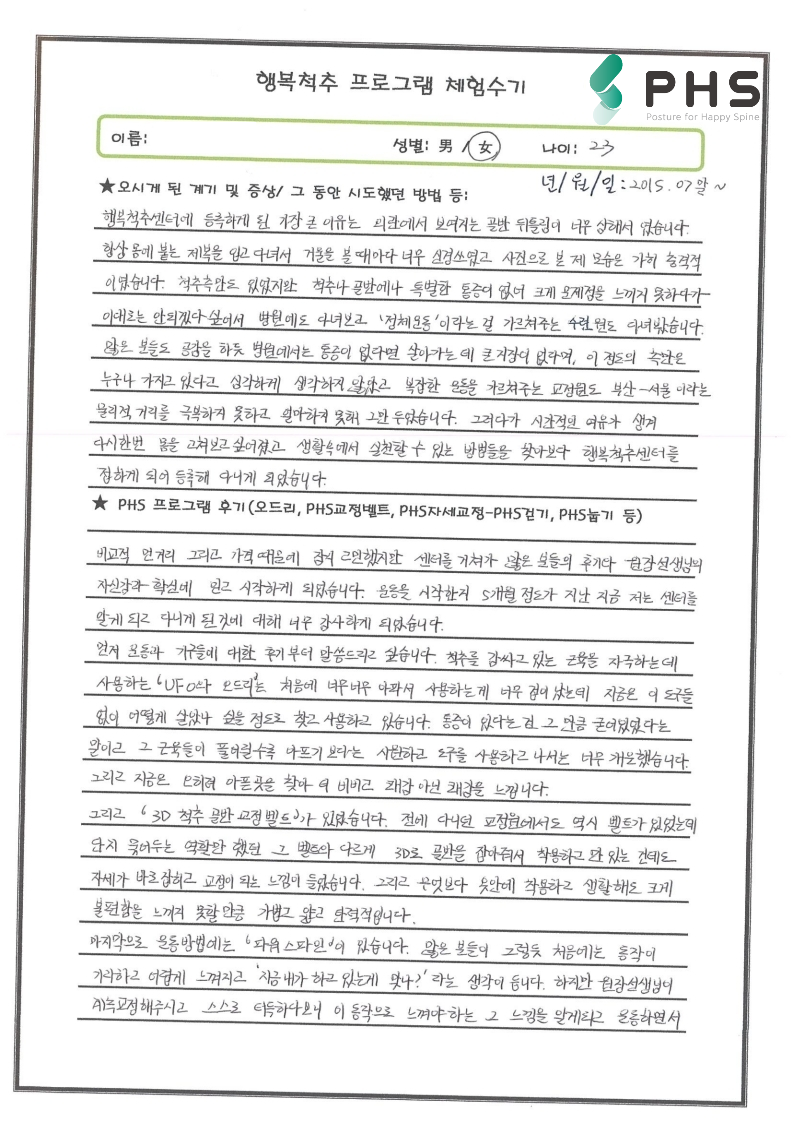 행복척추 프로그램 체험수기
PHS
Posture for Happy Spine
이름: 성별: 男 / 女 나이: 23
년/월/일: 2015. 07말 ~
★오시게 된 계기 및 증상/ 그 동안 시도했던 방법 등:
행복척추센터에 등록하게 된 가장 큰 이유는 외관에서 보여지는 골반 뒤틀림이 너무 심해서 였습니다.
항상 몸에 붙는 제복을 입고 다녀서 거울을 볼 때마다 너무 신경쓰였고 사진으로 본 제 모습은 가히 충격적
이였습니다. 척추측만도 있었지만 척추나 골반에나 특별한 통증이 없어 크게 문제점을 느끼지 못하다가
이대로는 안되겠다 싶어서 병원에도 다녀보고 '정체운동'이라는 걸 가르쳐주는 수련원도 다녀봤습니다.
많은 분들도 공감을 하듯 병원에서는 통증이 없다면 살아가는 데 큰 지장이 없다며, 이 정도의 측만은
누구나 가지고 있다고 심각하게 생각하지 않았고 복잡한 운동을 가르쳐주는 교정원도 부산-서울 이라는
물리적 거리를 극복하지 못하고 얼마하지 못해 그만 두었습니다. 그러다가 시간적인 여유가 생겨
다시한번 몸을 고쳐보고 싶어졌고 생활속에서 실천할 수 있는 방법들을 찾아보다 행복척추센터를
접하게 되어 등록해 다니게 되었습니다.
★ PHS 프로그램 후기(오드리, PHS교정벨트, PHS자세교정-PHS걷기, PHS눕기 등)
비교적 먼거리 그리고 가격 때문에 잠시 고민했지만 센터를 거쳐가 많은 분들의 후기다 원장선생님의
자신감과 확신에 믿고 시작하게 되었습니다. 운동을 시작한지 5개월 정도가 지난 지금 저는 센터를
알게 되고 다니게 된것에 대해 너무 감사하게 되었습니다.
먼저 운동과 기구들에 대한 후기부터 말씀드리고 싶습니다. 척추를 감싸고 있는 근육을 자극하는데
사용하는 'UFO와 오드리'는 처음에 너무너무 아파서 사용하는게 너무 겁이 났는데 지금은 이 도구들
없이 어떻게 살았나 싶을 정도로 찾고 사용하고 있습니다. 통증이 있다는 건 그 만큼 굳어있었다는
말이고 그 근육들이 풀어질수록 아프기 보다는 시원하고 도구를 사용하고 나서는 너무 개운했습니다.
그리고 지금은 오히려 아픈곳을 찾아 더 비비고 쾌감 아닌 쾌감을 느낍니다.
그리고 '3D 척추 골반 교정 벨트'가 있었습니다. 전에 다니던 교정원에서도 역시 벨트가 있었는데
단지 묶어두는 역할만 했던 그 벨트와 다르게 3D로 골반을 잡아줘서 착용하고만 있는 건데도
자세가 바로 잡히고 교정이 되는 느낌이 들었습니다. 그리고 무엇보다 옷안에 착용하고 생활해도 크게
불편함을 느끼지 못할만큼 가볍고 얇고 탄력적입니다.
마지막으로 운동방법에는 '파워스파인'이 있습니다. 많은 분들이 그렇듯 처음에는 동작이
가각하고 어렵게 느껴지고 '지금 내가 하고 있는게 맞나?' 라는 생각이 듭니다. 하지만 원장선생님이
계속교정해주시고 스스로 터득하다보니 이 동작으로 느껴야 하는 그 느낌을 알게되고 운동하면서